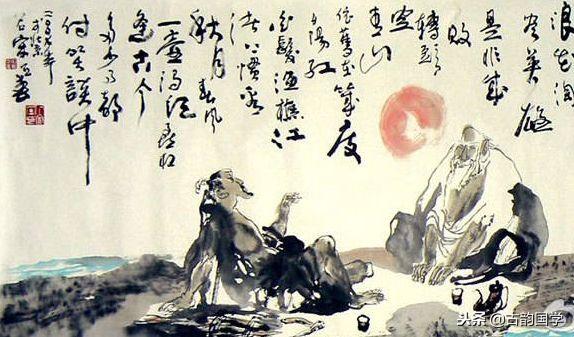 浪花淘
尽英雄
是非成
敗
轉頭
空
青山
依舊在幾度
夕陽红
白髮漁樵江
渚上慣看
秋月春风
一壶浊酒喜相
逢古今
多少事都
付笑談中
头条@古韵国学